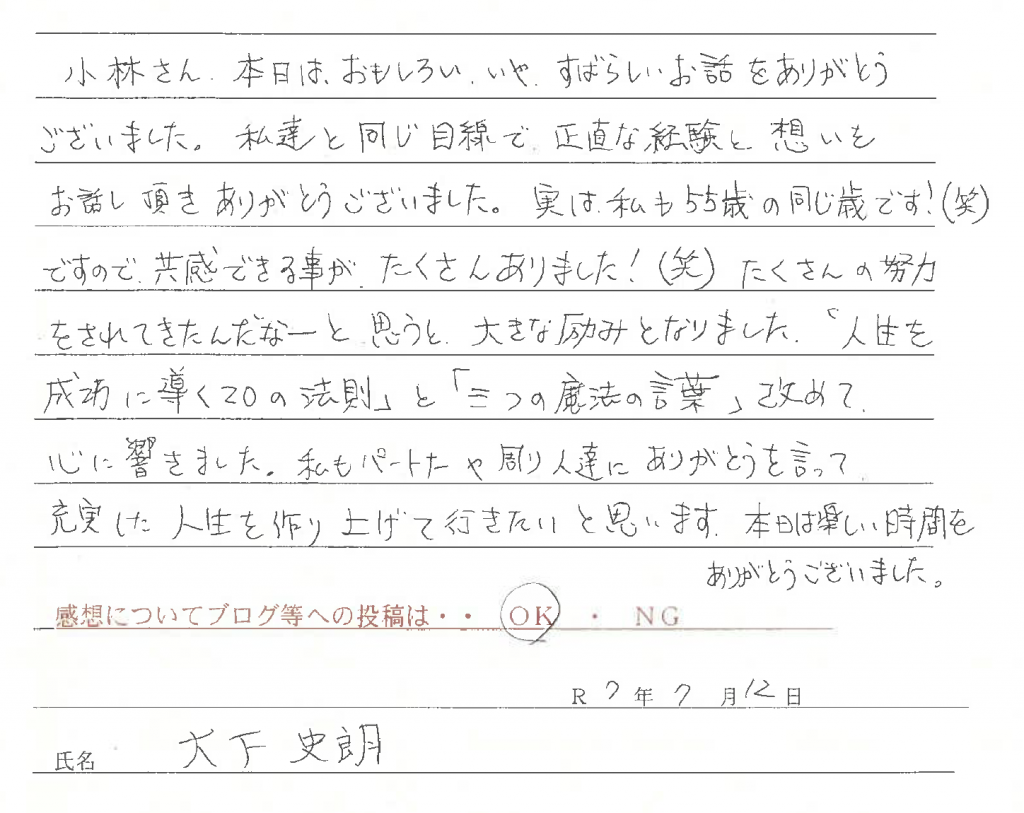 小林さん、本日は、おもしろい、いや、すばらしいお話をありがとう
ございました。私達と同じ目線で、正直な経験と、想いを
お話し頂きありがとうございました。実は、私も55歳の同じ歳です!(笑)
ですので、共感できる事が、たくさんありました!(笑)たくさんの努力
をされてきたんだなーと思うと、大きな励みとなりました。「人生を
成功に導く20の法則」と「三つの魔法の言葉」改めて、
心に響きました。私もパートナーや周り人達にありがとうを言って、
充実した人生を作り上げて行きたいと思います。本日は楽しい時間を
ありがとうございました。
感想についてブログ等への投稿は・・ OK ・ NG
R 7 年 7 月 12 日
氏名 大下 史朗